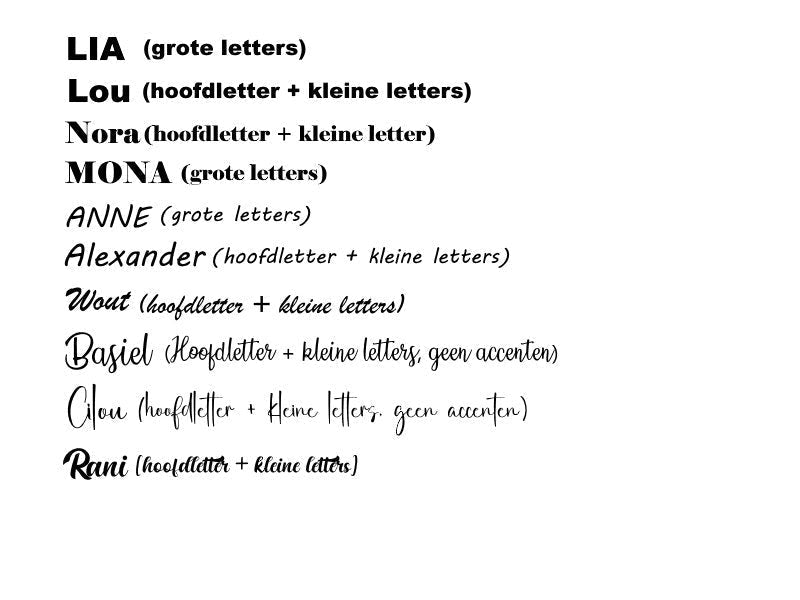 LIA (grote letters)
Lou (hoofdletter + kleine letters)
Nora (hoofdletter + kleine letter)
MONA (grote letters)
ANNE (grote letters)
Alexander (hoofdletter + kleine letters)
Wout (hoofdletter + kleine letters)
Basiel (Hoofdletter + kleine letters, geen accenten)
Cilou (hoofdletter + kleine letters. geen accenten)
Rani (hoofdletter + kleine letters)